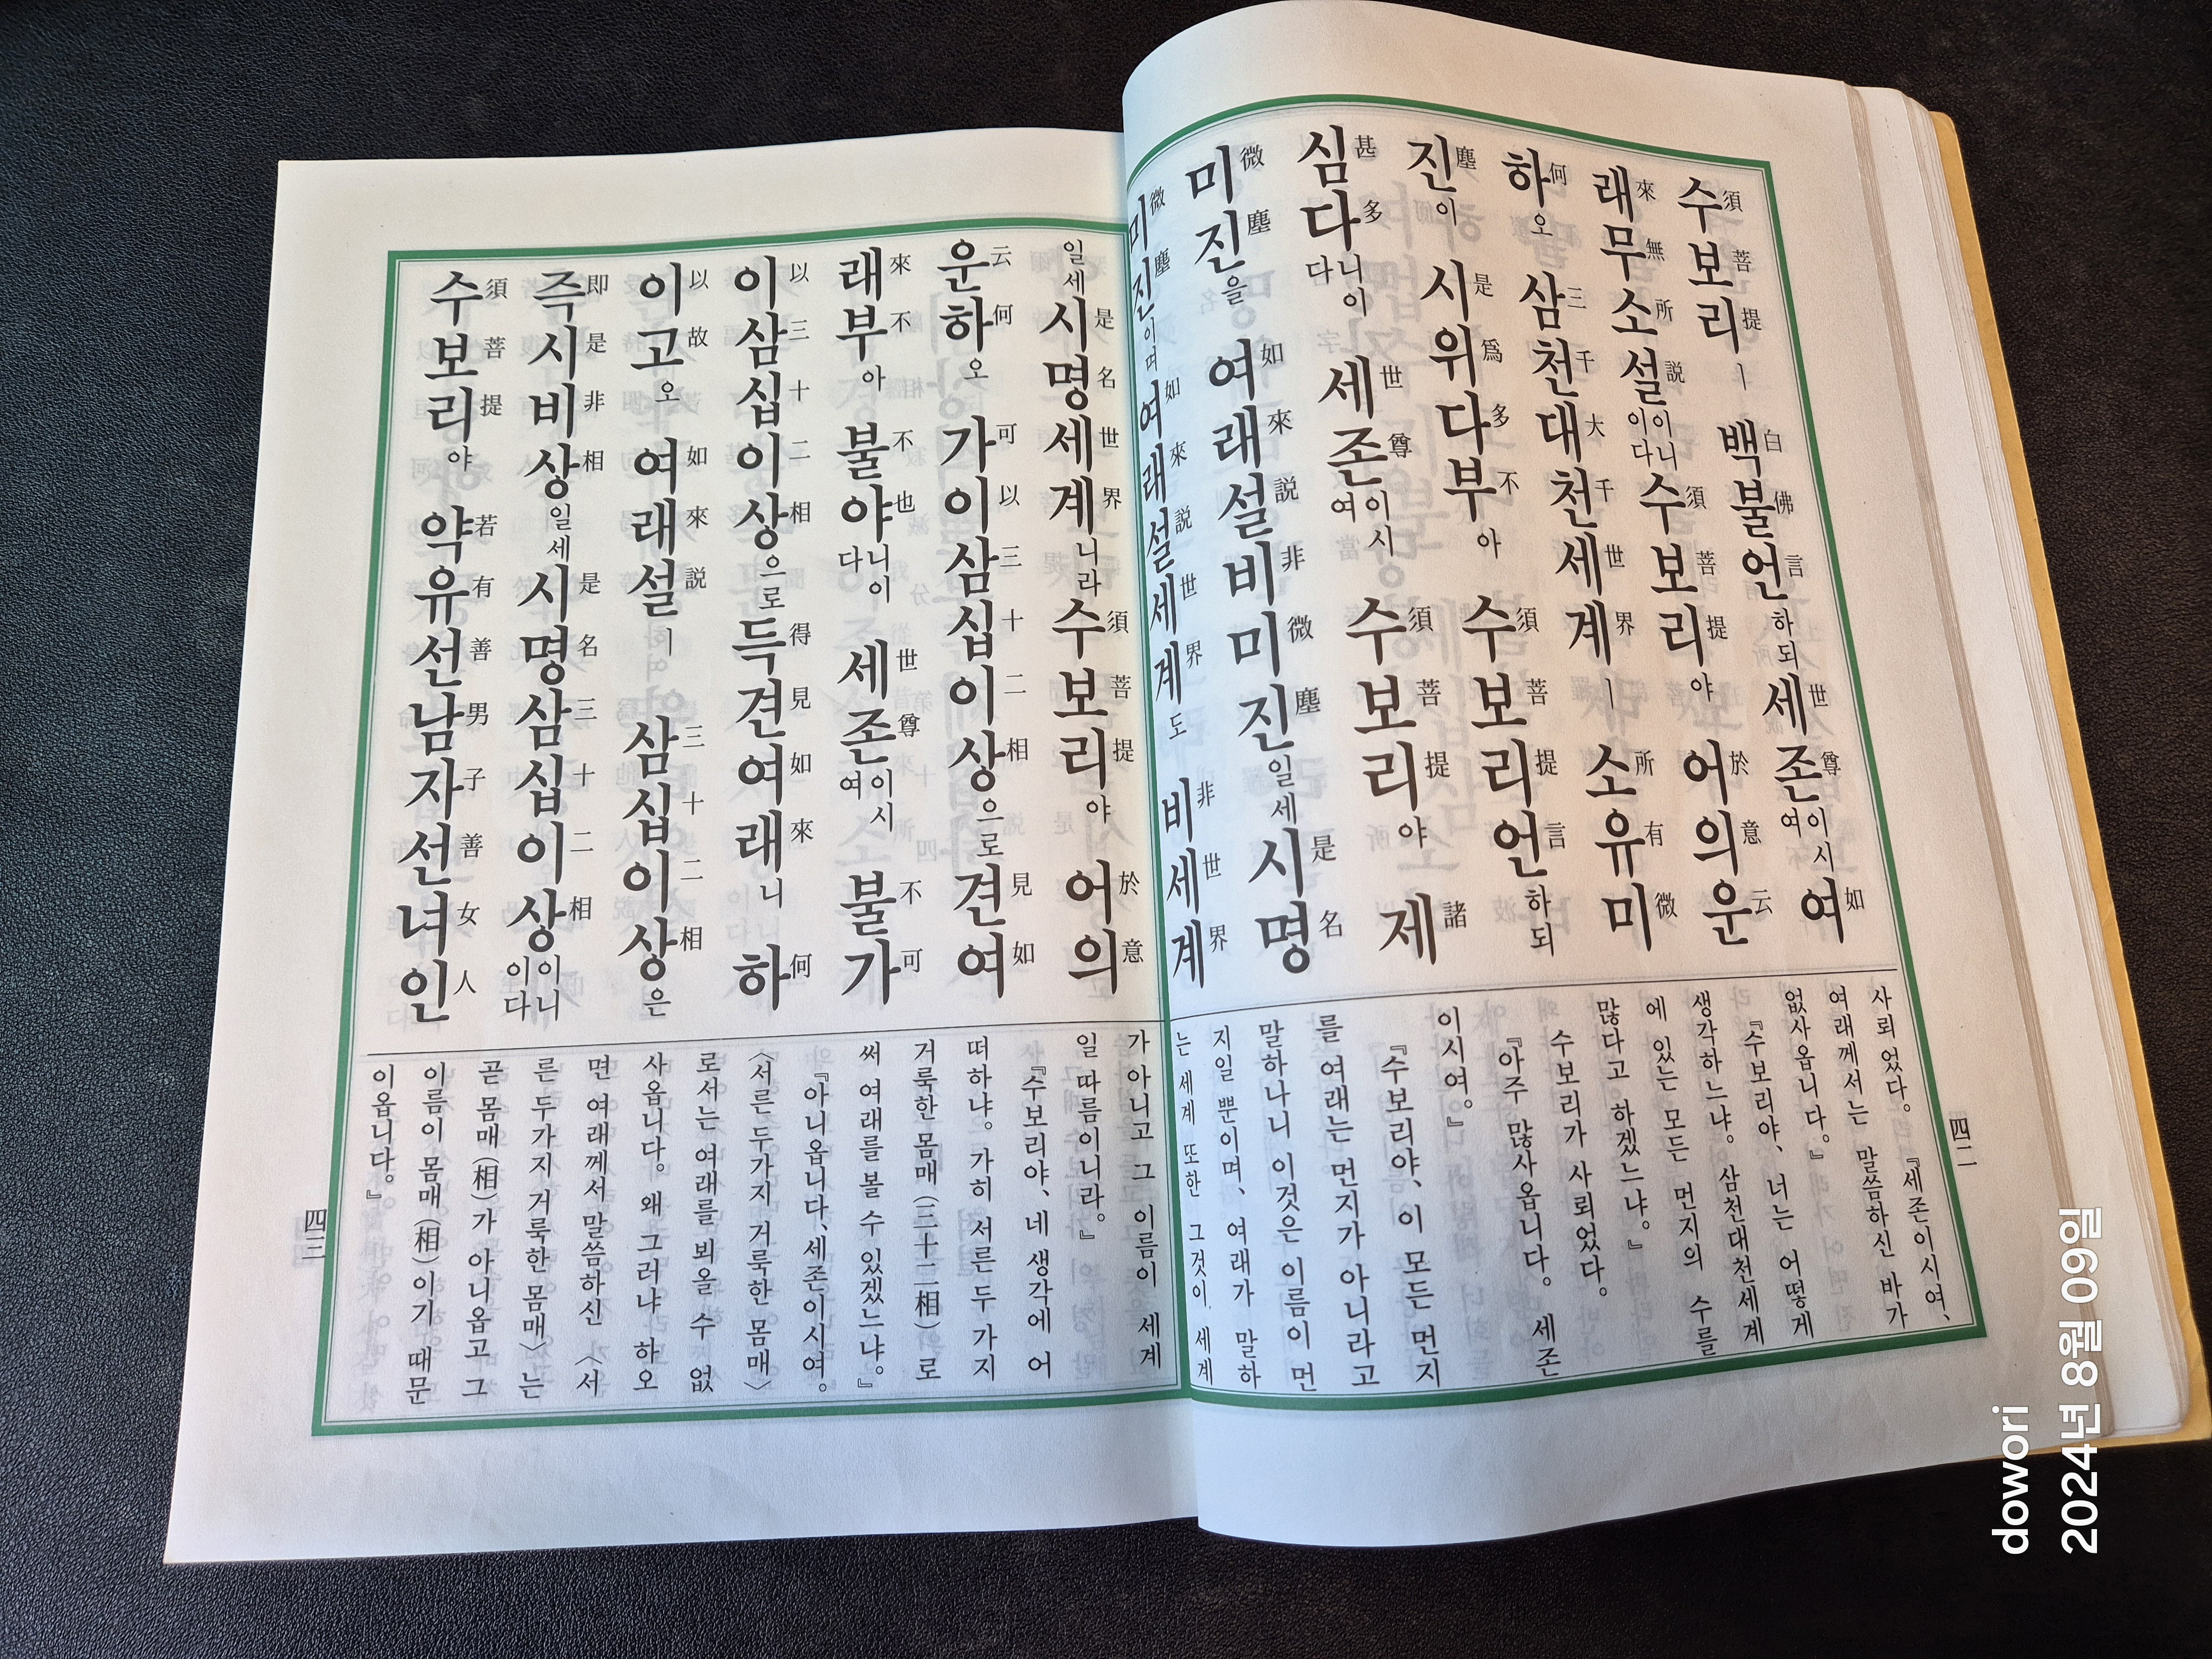 수보리ㅣ 백불언하되 세존이시여 여
須菩提 白佛言 世尊 如
래무소설이니이다 수보리야 어의운
來無所説 須菩提 於意云
하오 삼천대천세계ㅣ 소유미
何 三千大千世界 所有微
진이 시위다부아 수보리언하되
塵 是爲多不 須菩提言
심다니이다 세존이시여 수보리야 제
甚多 世尊 須菩提 諸
미진을 여래설비미진일세 시명
微塵 如來説非微塵 是名
미진이며 여래설세계도 비세계
微塵 如來説世界 非世界
사뢰었다。 『세존이시여、
여래께서는 말씀하신 바가
없사옵니다。』
『수보리야、너는 어떻게
생각하느냐。삼천대천세계
에 있는 모든 먼지의 수를
많다고 하겠느냐。』
수보리가 사뢰었다。
『아주 많사옵니다。 세존
이시여。』
『수보리야、이 모든 먼지
를 여래는 먼지가 아니라고
말하나니 이것은 이름이 먼
지일 뿐이며、여래가 말하
는 세계 또한 그것이 세계
四二
일세 시명세계니라 수보리야 어의
是名世界 須菩提 於意
운하오 가이삼십이상으로 견여
云何 可以三十二相 見如
래부아 불야니이다 세존이시여 불가
來不 不也 世尊 不可
이삼십이상으로 득견여래니 하
以三十二相 得見如來 何
이고오 여래설ㅣ 삼십이상은
以故 如來説 三十二相
즉시비상일세 시명삼십이상이니이다
即是非相 是名三十二相
수보리야 약유선남자선녀인
須菩提 若有善男子善女人
가 아니고 그 이름이 세계
일 따름이니라。』
『수보리야、네 생각에 어
떠하냐。가히 서른두 가지
거룩한 몸매(三十二相)로
써 여래를 볼 수 있겠느냐。』
『아니옵니다、세존이시여。
〈서른두가지 거룩한 몸매〉
로서는 여래를 뵈올 수 없
사옵니다。왜 그러냐 하오
면 여래께서 말씀하신 〈서
른두가지 거룩한 몸매〉는
곧 몸매(相)가 아니옵고 그
이름이 몸매(相)이기 때문
이옵니다。』
四三
dowori
2024년 8월 09일